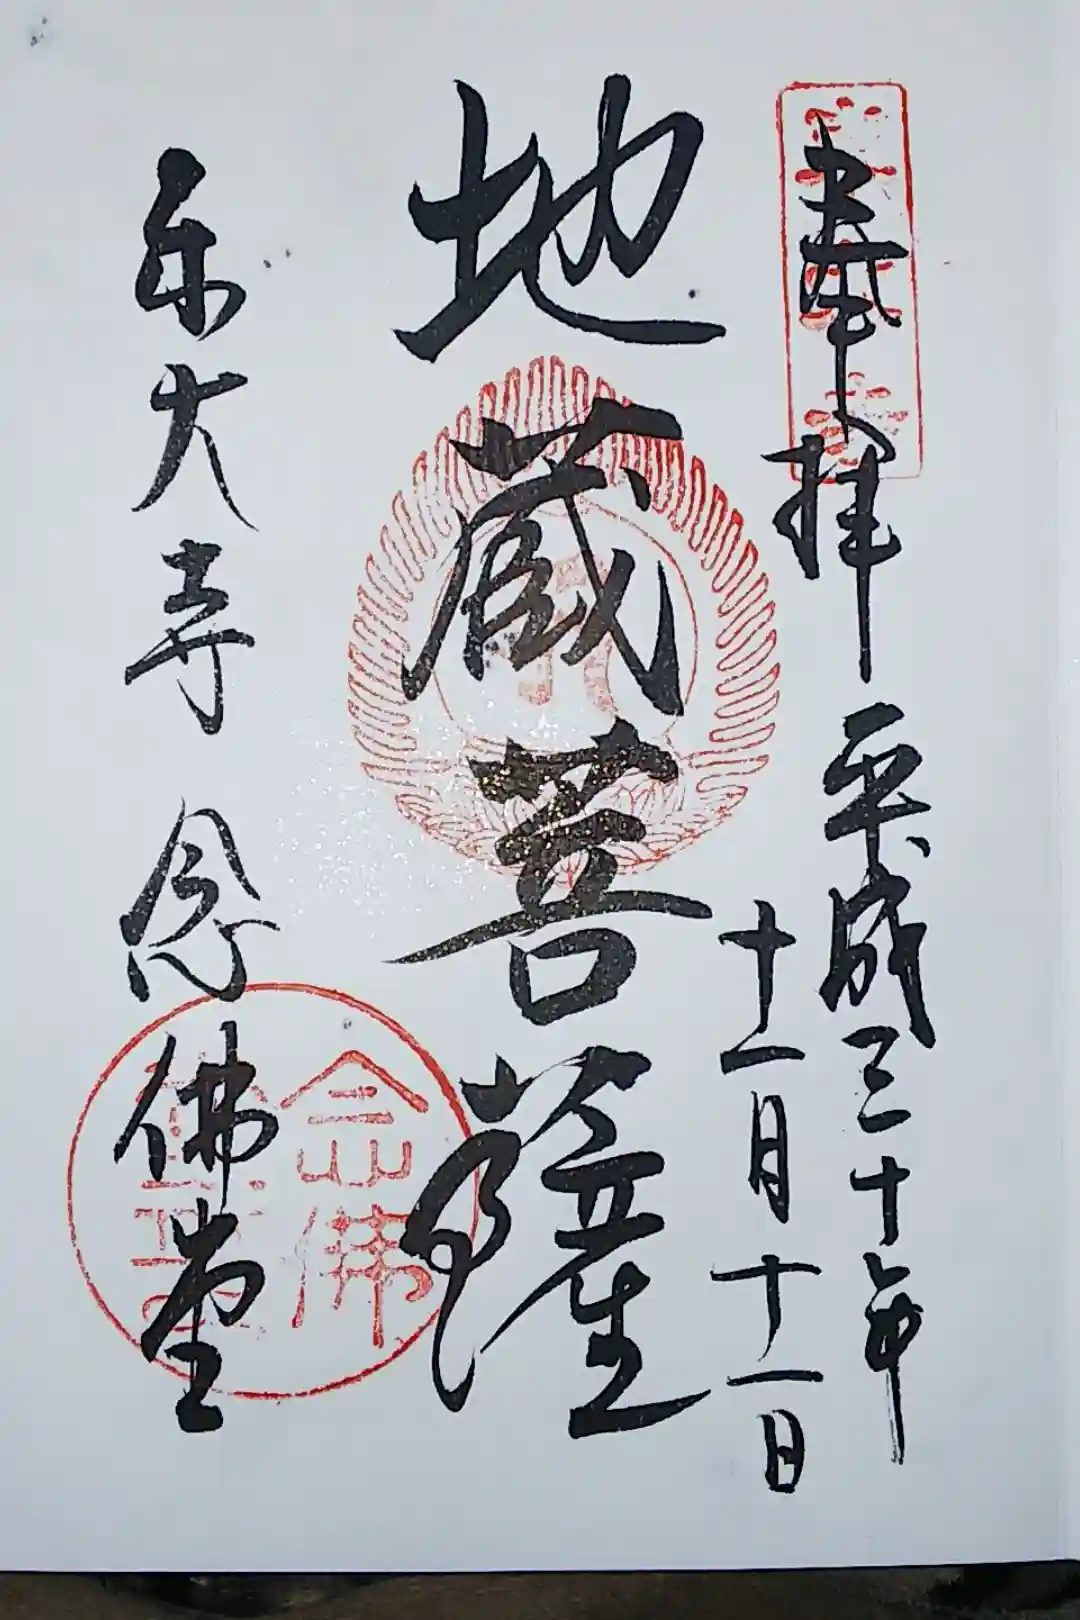 奉拝
平成三十年
十一月十一日
地蔵菩薩
东大寺 念佛堂
念佛